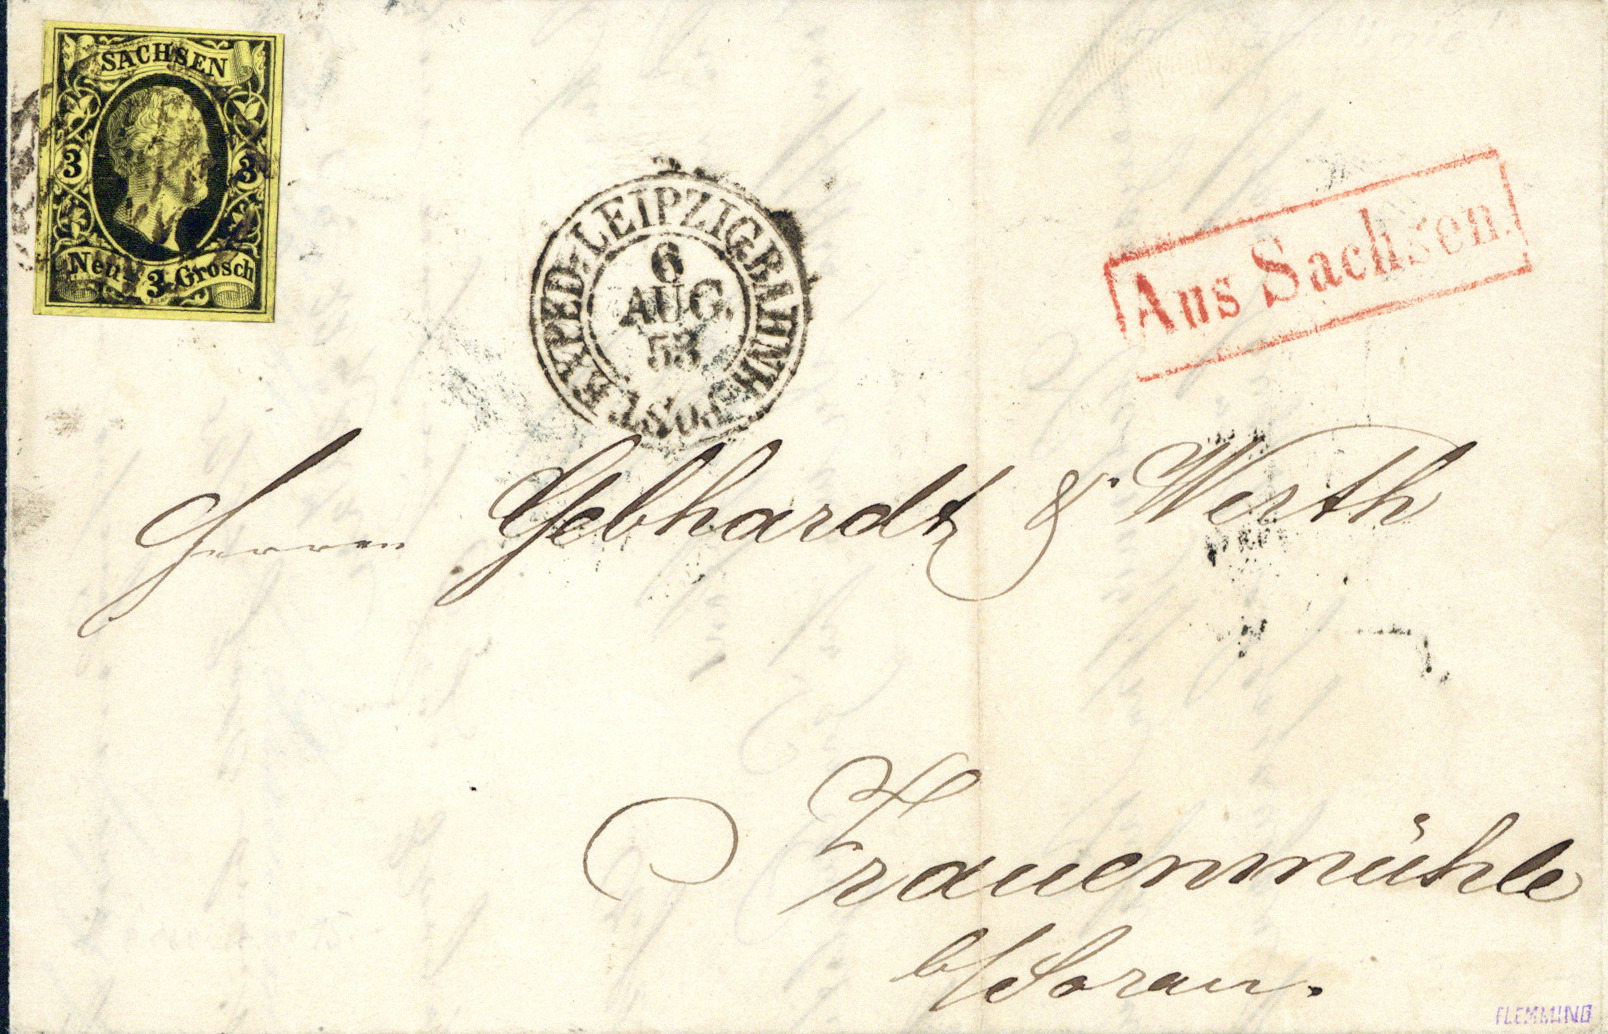 SACHSEN
3 3
Neu 3 Grosch
POST.EXPED.LEIPZIG.BAHNH.
6
AUG.
53
Aus Sachsen.
Herren Gebhardt & Werth
Frauenmühle
b/Sorau.
FLEMMING